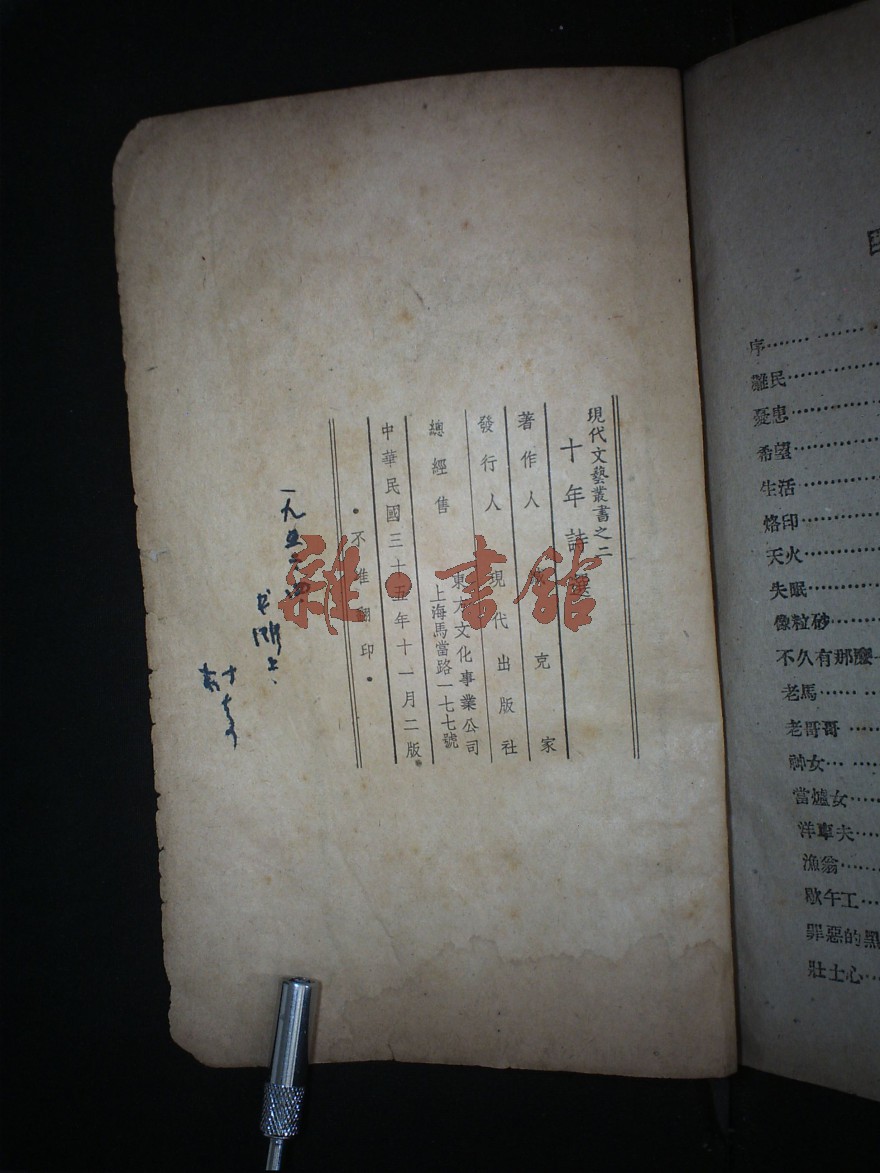 現代文藝叢書之二
十年詩選
著作人 克家
發行人 現代出版社
總經售 東方文化事業公司
上海馬當路一七七號
中華民國三十五年十一月二版
•不准翻印•
一九五
雜·書館
序
難民
憂患
希望
生活
烙印
天火
失眠
像粒砂
不久有那麼一
老馬
老哥哥
神女
當爐女
洋車夫
漁翁
歇午工
罪惡的黑
壯士心